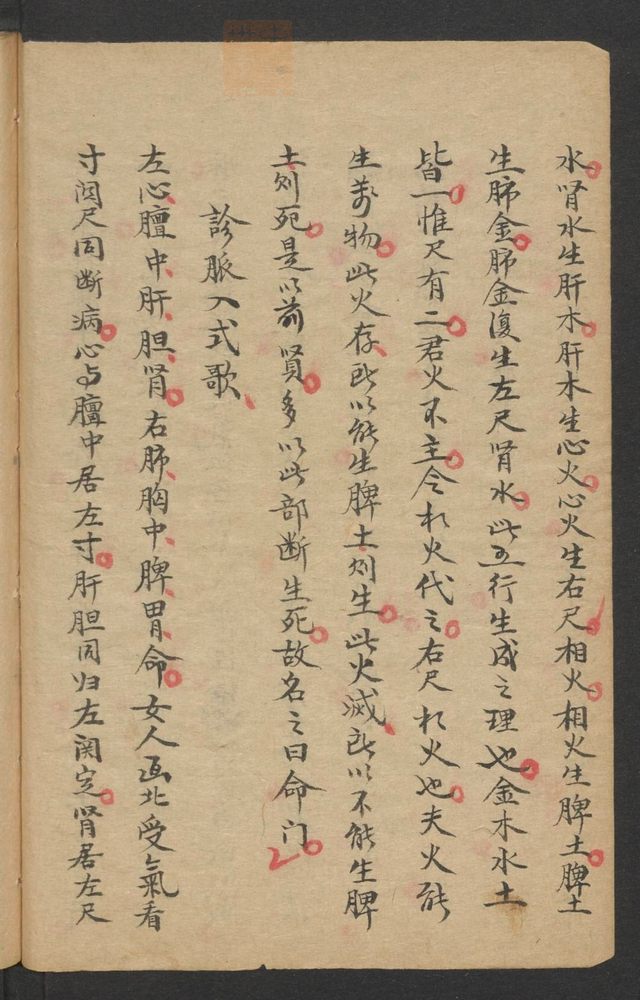 水肾水生肝木肝木生心火心火生右尺相火相火生脾土脾土
生肺金肺金復生左尺肾水此五行生成之理也金木水土
皆一惟尺有二君火不主令相火代之右尺相火也夫火能
生萬物此火存所以能生脾土則生此火滅所以不能生脾
土則死是以前賢多以此部断生死故名之曰命门
診脈入式歌
左心膻中肝胆肾右肺胸中脾胃命女人面北受氣看
寸関尺同断病心与膻中居左寸肝胆同归左関定肾居左尺